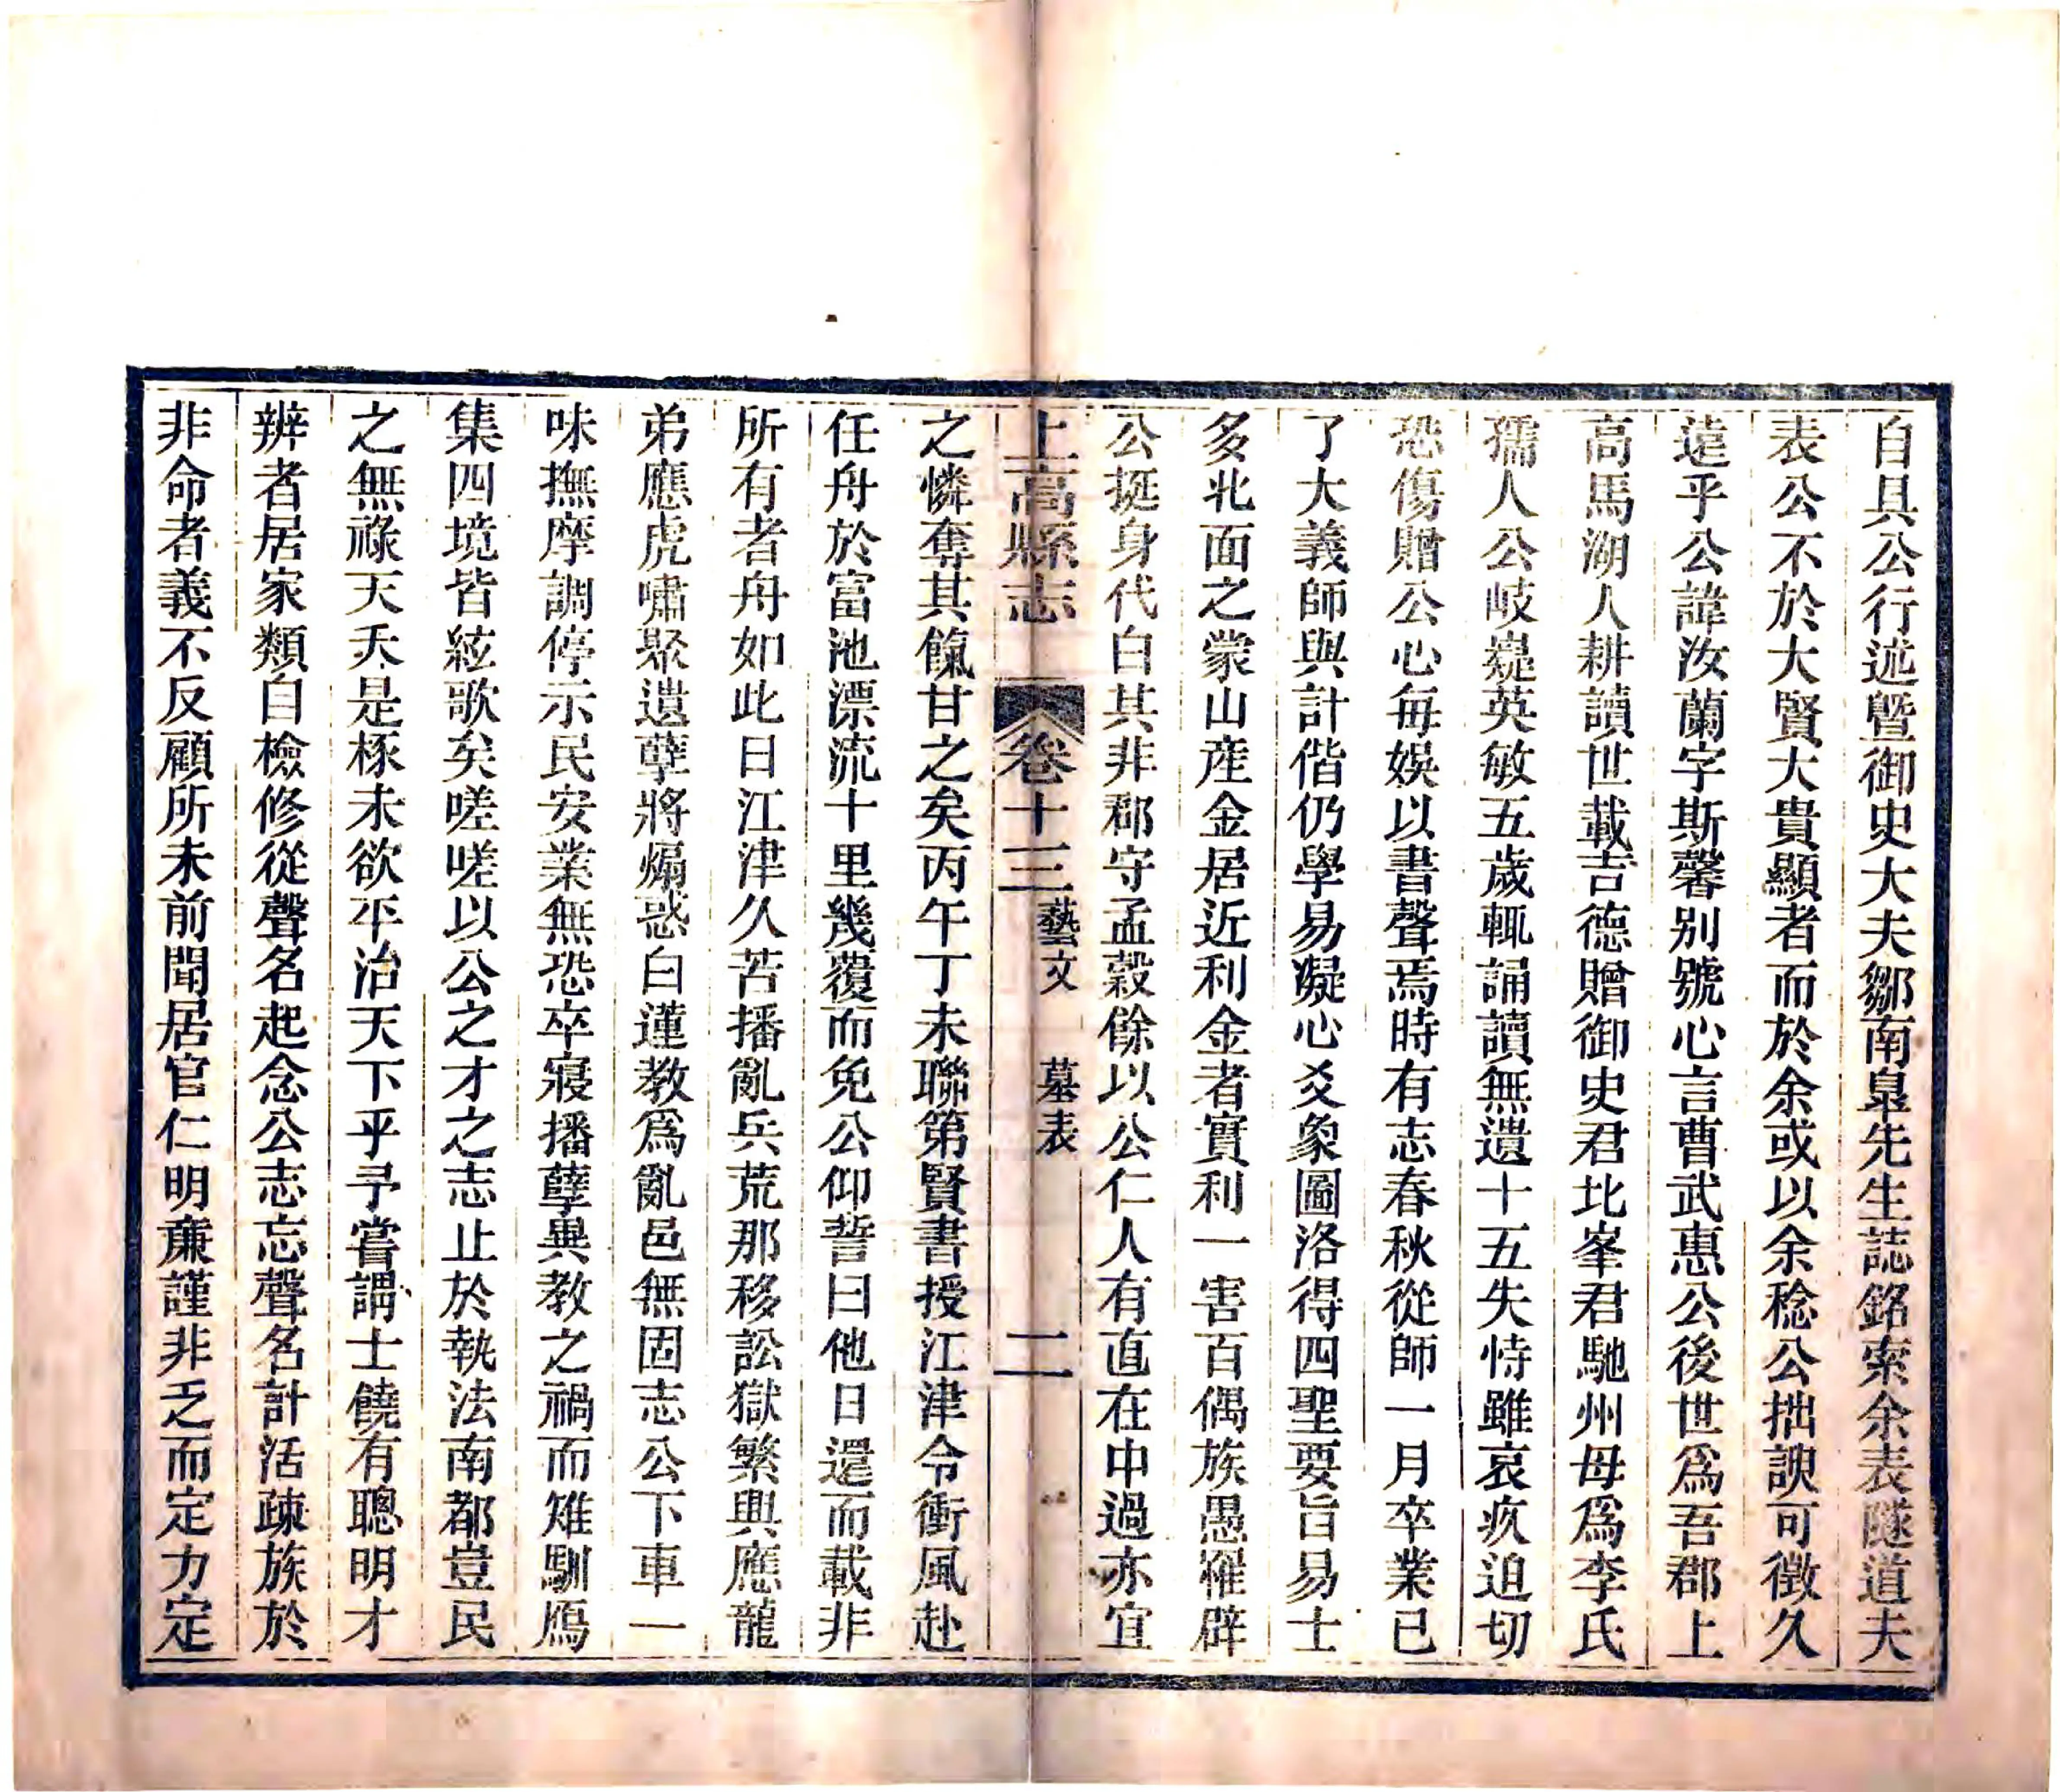 自具公行述曁御史大夫鄒南臯先生誌銘索余表隧道夫
表公不於大賢大貴顯者而於余或以余稔公拙諛可徴久
遠乎公諱汝蘭字斯馨别號心言曹武惠公後世爲吾郡上
高馬湖人耕讀世載吉德贈御史君北峯君馳州母爲李氏
孺人公岐嶷英敏五歲輒誦讀無遺十五失恃雖哀疚迫切
恐傷贈公心每娛以書聲焉時有志春秋從師一月卒業已
了大義師與計偕仍學易凝心爻象圖洛得四聖要旨易士
多北面之蒙山産金居近利金者實利一害百偶族愚罹辟
公挺身代白其非郡守孟穀餘以公仁人有直在中過亦宜
上高縣志 卷十三 藝文 墓表 二
之憐奪其餼甘之矣丙午丁未聯第賢書授江津令衝風赴
任舟於富池漂流十里幾覆而免公仰誓曰他日還而載非
所有者舟如此日江津久苦播亂兵荒那移訟獄繁興應龍
弟應虎嘯聚遺孽將煽惑白蓮教爲亂邑無固志公下車一
味撫摩調停示民安業無恐卒寢播孽異教之禍而雉馴鴈
集四境皆絃歌矣嗟嗟以公之才之志止於執法南都豈民
之無祿天夭是椓未欲平治天下乎予嘗謂士饒有聰明才
辨者居家類自檢修從聲名起念公志忘聲名計活疎族於
非命者義不反顧所未前聞居官仁明亷謹非乏而定力定